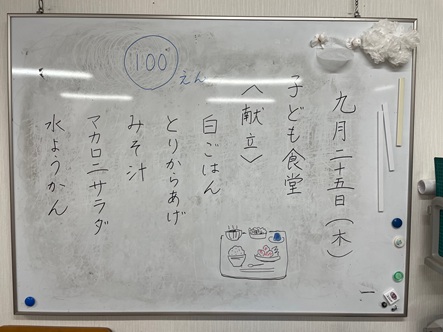 九月二十五日(木)
子ども食堂
〈献立〉
白ごはん
とりからあげ
みそ汁
マカロニサラダ
水ようかん
100えん